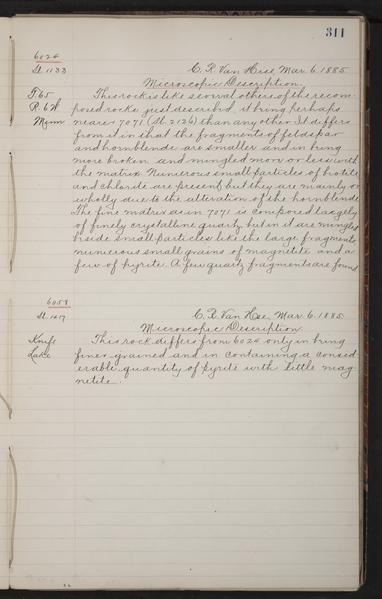 311
6024
Sl. 1133
C. R. Van Hise, Mar. 6. 1885.
Microscopic Description.
T. 65
R. 6 W
Minn
This rock is like several others of the recom-
posed rocks just described, it being perhaps
nearer 7071 (Sl. 2126) than any other. It differs
from it in that the fragments of feldspar
and hornblende are smaller and in being
more broken and mingled more or less with
the matrix. Numerous small particles of biotite
and chlorite are present, but they are mainly or
wholly due to the alteration of the hornblende.
The fine matrix as in 7071 is composed largely
of finely crystalline quartz but in it are mingled
beside small particles like the large fragments
numerous small grains of magnetite and a
few of pyrite. A few quartz fragments are found
6058
Sl.
C. R. Van Hise, Mar. 6. 1885.
Microscopic Description.
Knife
Lake
This rock differs from 6024 only in being
finer grained and in containing a consid-
erable quantity of pyrite with little mag-
netite.